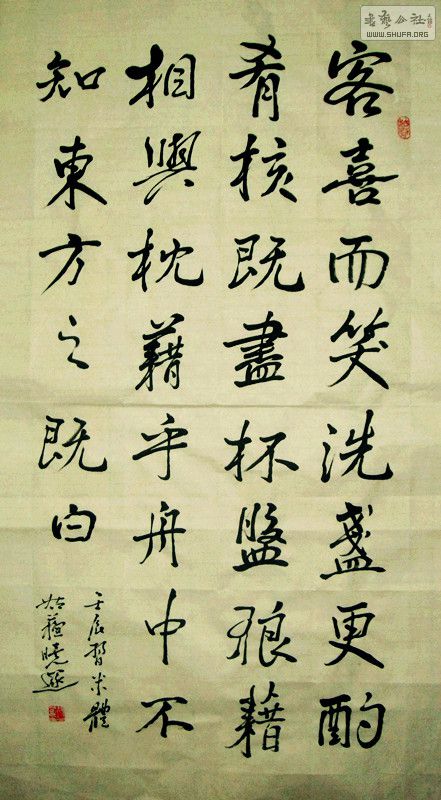 书艺公社
WWW.SHUFA.ORG
客喜而笑洗盞更酌
肴核既盡杯盤狼藉
相與枕藉乎舟中不
知東方之既白
壬辰習米體
姑蘇曉